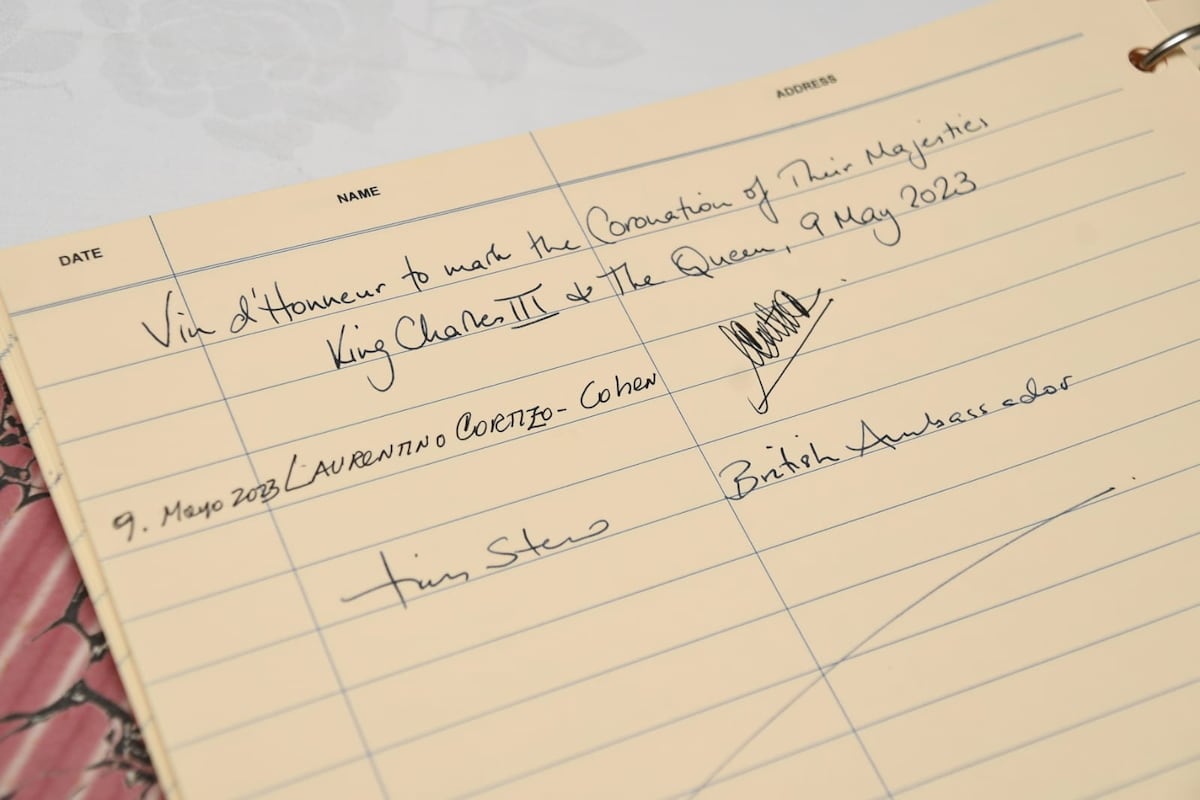 DATE NAME ADDRESS
Vin d'Honneur to mark the Coronation of Their Majesties
King Charles III & The Queen, 9 May 2023
9. Mayo 2023 LAURENTINO CORTIZO-COHEN
Tim Stew British Ambassador